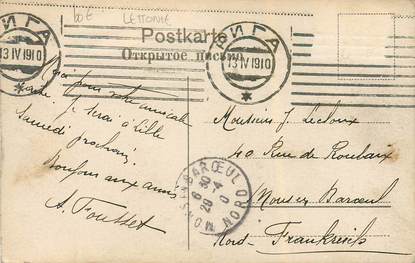 LETTONIE
Postkarte
Открытое письмо
РИГА
13 IV 1910
РИГА
13 IV 1910
Merci pour votre amicale
carte. Je serai à Lille
Samedi prochain.
Bonjour aux amis
A. Fousset
Monsieur J. Lecloux
40 Rue de Roubaix
Mons en Barœul
Nord - Frankreich
MONS-EN-BARŒUL NORD